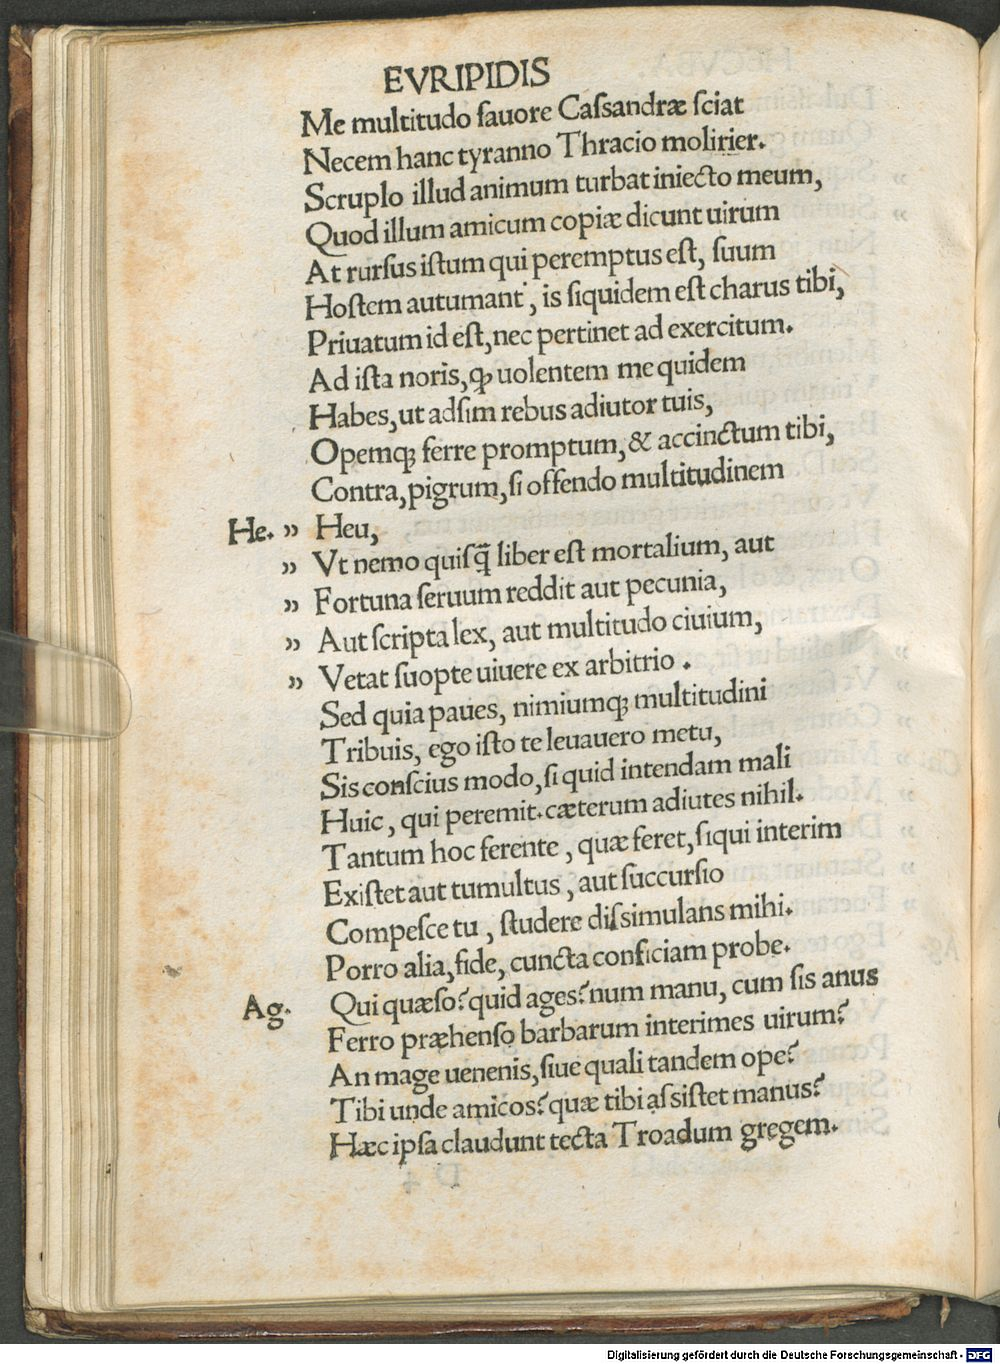 EVRIPIDIS
Me multitudo fauore Caſſandræ ſciat
Necem hanc tyranno Thracio molirier.
Scruplo illud animum turbat iniecto meum,
Quod illum amicum copiæ dicunt uirum
At rurſus iſtum qui peremptus eſt, ſuum
Hoſtem autumant, is ſiquidem eſt charus tibi,
Priuatum id eſt, nec pertinet ad exercitum.
Ad iſta noris, ꝙ uolentem me quidem
Habes, ut adſim rebus adiutor tuis,
Opemqꝫ ferre promptum, & accinctum tibi,
Contra, pigrum, ſi offendo multitudinem
He. ” Heu,
” Vt nemo quiſq̃ liber eſt mortalium, aut
” Fortuna ſeruum reddit aut pecunia,
” Aut ſcripta lex, aut multitudo ciuium,
” Vetat ſuopte uiuere ex arbitrio.
Sed quia paues, nimiumqꝫ multitudini
Tribuis, ego iſto te leuauero metu,
Sis conſcius modo, ſi quid intendam mali
Huic, qui peremit. cæterum adiutes nihil.
Tantum hoc ferente, quæ feret, ſiqui interim
Exiſtet aut tumultus, aut ſuccurſio
Compeſce tu, ſtudere diſſimulans mihi.
Porro alia, fide, cuncta conficiam probe.
Ag. Qui quæſo? quid ages? num manu, cum ſis anus
Ferro præhenſo barbarum interimes uirum?
An mage uenenis, ſiue quali tandem ope?
Tibi unde amicos? quæ tibi aſſiſtet manus?
Hæc ipſa claudunt tecta Troadum gregem.
Digitalisierung gefördert durch die Deutsche Forschungsgemeinschaft - DFG